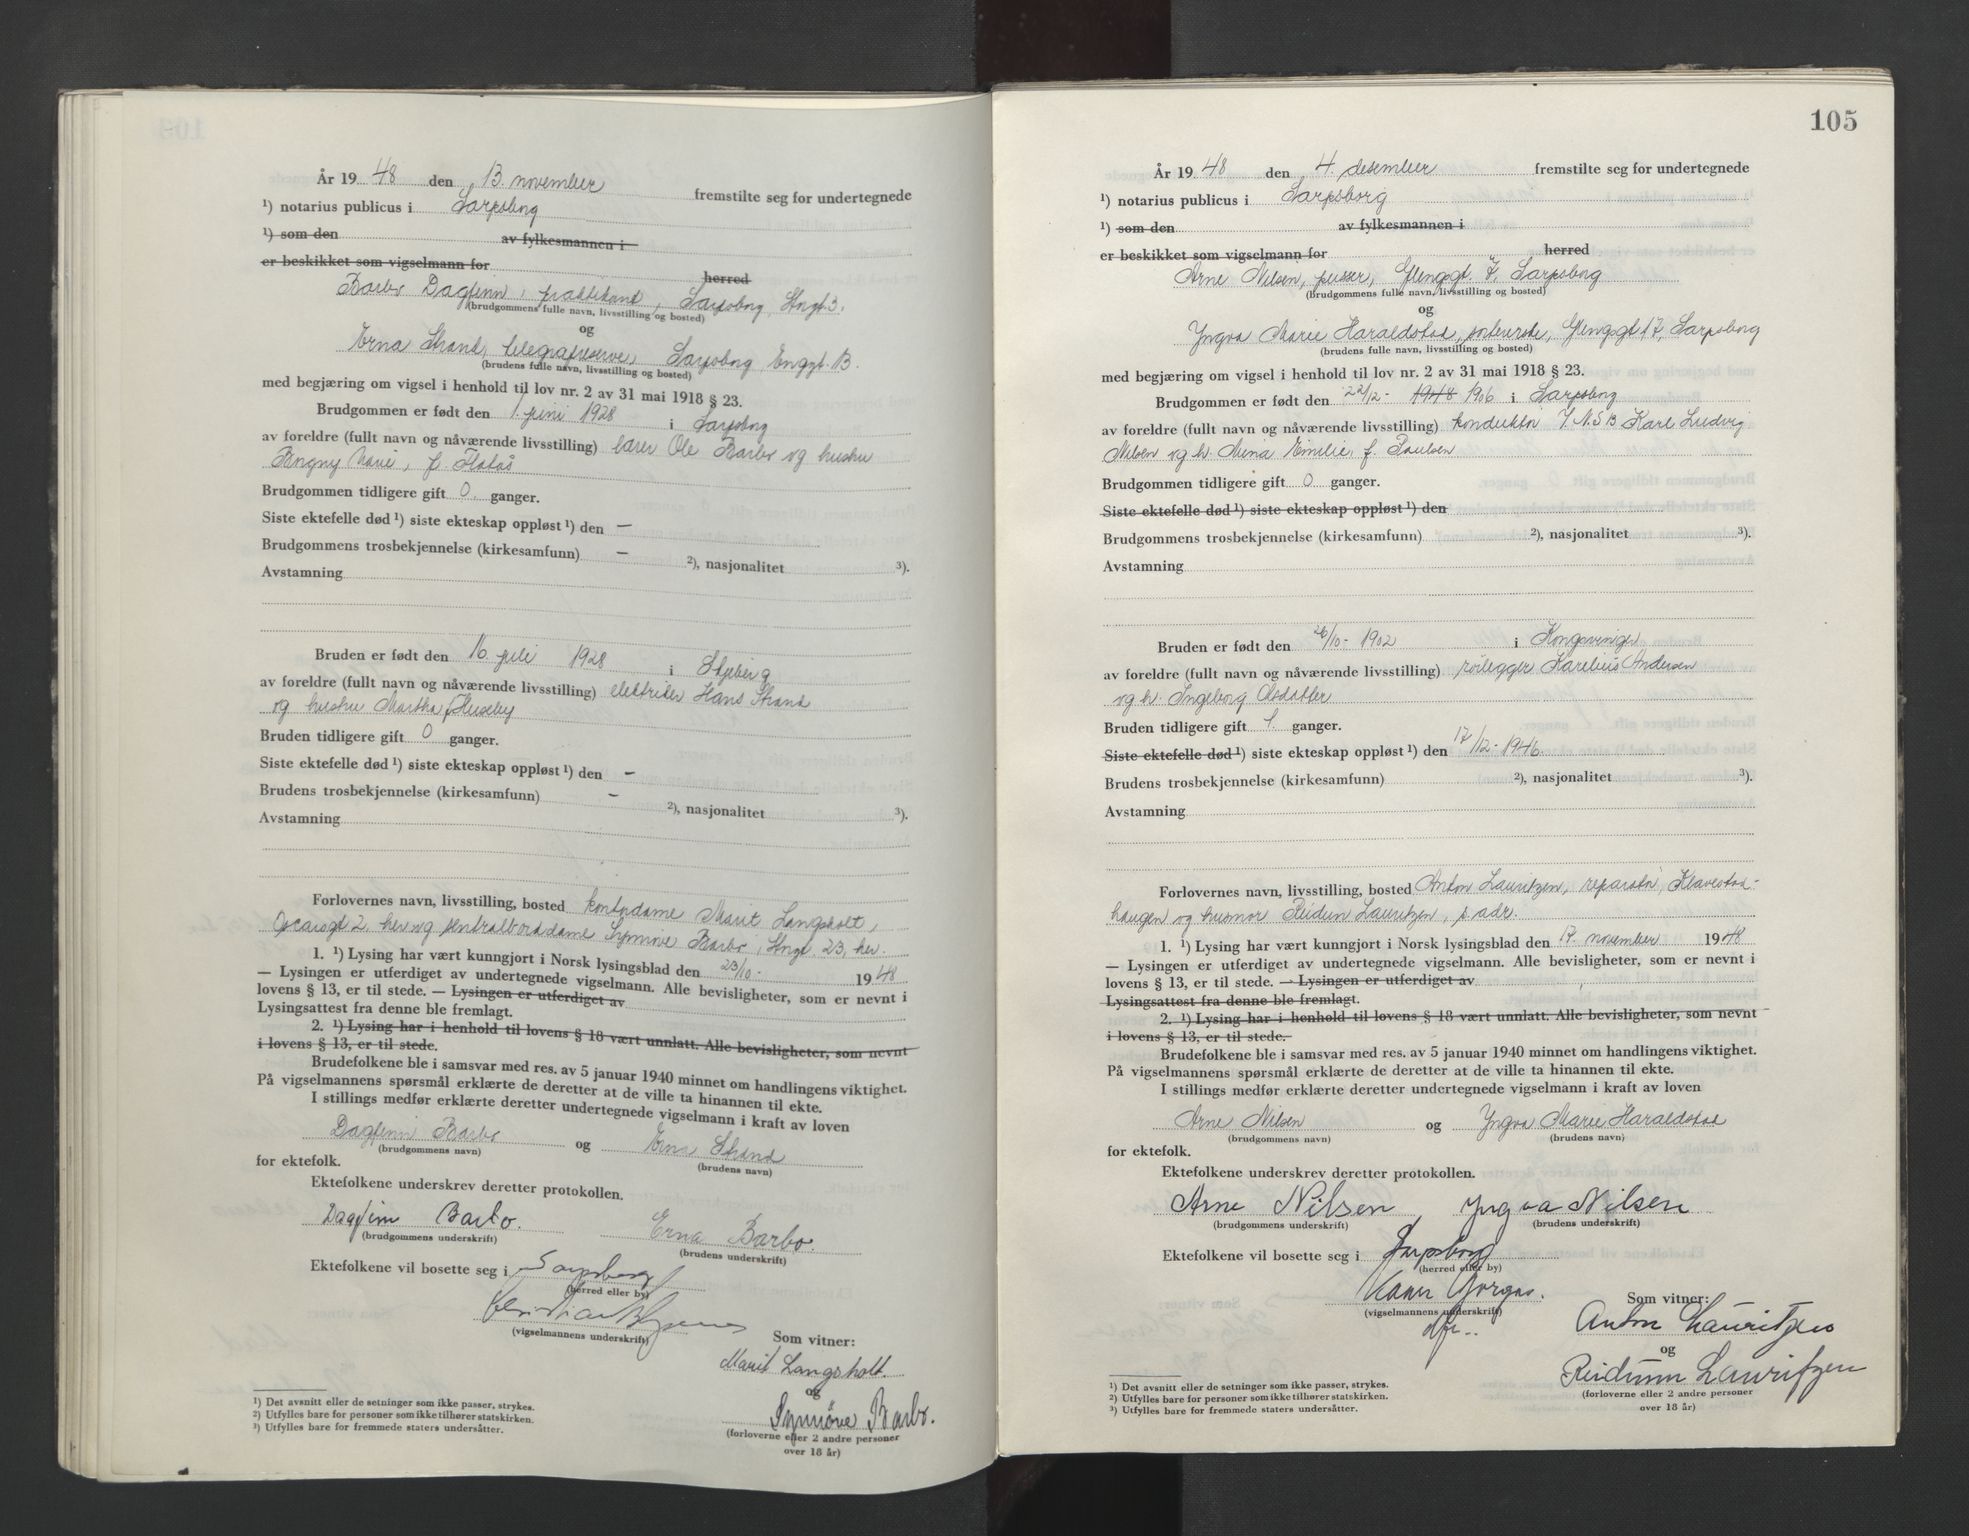 År 19 48 den 13. november fremstilte seg for undertegnede
¹) notarius publicus i Sarpsborg
¹) som den av fylkesmannen i
er beskikket som vigselmann for herred
Barbo Dagfinn, praktikant, Sarpsborg, Stngt. 3.
(brudgommens fulle navn, livsstilling og bosted)
og
Erna Strand, telegrafreserve, Sarpsborg, Enggt. 13.
(brudens fulle navn, livsstilling og bosted)
med begjæring om vigsel i henhold til lov nr. 2 av 31 mai 1918 § 23.
Brudgommen er født den 1. juni 1928 i Sarpsborg
av foreldre (fullt navn og nåværende livsstilling) lærer Ole Barbo og hustru
Borgny Marie, f. Flatås
Brudgommen tidligere gift 0. ganger.
Siste ektefelle død ¹) siste ekteskap oppløst ¹) den —
Brudgommens trosbekjennelse (kirkesamfunn) — ²), nasjonalitet ³).
Avstamning
Bruden er født den 16. juli 1928 i Skjeberg
av foreldre (fullt navn og nåværende livsstilling) elektriker Hans Strand
og hustru Martha f. Huseby
Bruden tidligere gift 0 ganger.
Siste ektefelle død ¹) siste ekteskap oppløst ¹) den —
Brudens trosbekjennelse (kirkesamfunn) — ²), nasjonalitet ³).
Avstamning
Forlovernes navn, livsstilling, bosted kontordame Marit Langsholt,
Oscarsgt 2, her og sentralborddame Synnøve Barbo, Stngt. 23, her.
1. ¹) Lysing har vært kunngjort i Norsk lysingsblad den 23/10 - 1948
— Lysingen er utferdiget av undertegnede vigselmann. Alle bevisligheter, som er nevnt i
lovens § 13, er til stede. — Lysingen er utferdiget av
Lysingsattest fra denne ble fremlagt.
2. ¹) Lysing har i henhold til lovens § 18 vært unnlatt. Alle bevisligheter, som nevnt
i lovens § 13, er til stede.
Brudefolkene ble i samsvar med res. av 5 januar 1940 minnet om handlingens viktighet.
På vigselmannens spørsmål erklærte de deretter at de ville ta hinannen til ekte.
I stillings medfør erklærte deretter undertegnede vigselmann i kraft av loven
Dagfinn Barbo og Erna Strand
(brudgommens navn) (brudens navn)
for ektefolk.
Ektefolkene underskrev deretter protokollen.
Dagfinn Barbo. Erna Barbo.
(brudgommens underskrift) (brudens underskrift)
Ektefolkene vil bosette seg i Sarpsborg
(herred eller by)
(vigselmannens underskrift)
Som vitner:
Marit Langsholt.
og
Synnøve Barbo.
(forloverne eller 2 andre personer
over 18 år)
¹) Det avsnitt eller de setninger som ikke passer, strykes.
²) Utfylles bare for personer som ikke tilhører statskirken.
³) Utfylles bare for fremmede staters undersåtter.
105
År 19 48 den 4. desember fremstilte seg for undertegnede
¹) notarius publicus i Sarpsborg
¹) som den av fylkesmannen i
er beskikket som vigselmann for herred
Arne Nilsen, pusser, Glengsgt. 17, Sarpsborg
(brudgommens fulle navn, livsstilling og bosted)
og
Yngva Marie Haraldstad, sorterske, Glengsgt 17, Sarpsborg
(brudens fulle navn, livsstilling og bosted)
med begjæring om vigsel i henhold til lov nr. 2 av 31 mai 1918 § 23.
Brudgommen er født den 22/12 - 1948 1906 i Sarpsborg
av foreldre (fullt navn og nåværende livsstilling) konduktør i N.S.B Karl Ludvig
Nilsen og h. Mina Emilie, f. Paulsen
Brudgommen tidligere gift 0 ganger.
Siste ektefelle død ¹) siste ekteskap oppløst ¹) den
Brudgommens trosbekjennelse (kirkesamfunn) ²), nasjonalitet ³).
Avstamning
Bruden er født den 26/10 - 1902 i Kongsvinger
av foreldre (fullt navn og nåværende livsstilling) rørlegger Karelius Andersen
og h. Ingeborg Olsdatter
Bruden tidligere gift 1. ganger.
Siste ektefelle død ¹) siste ekteskap oppløst ¹) den 17/12 - 1946.
Brudens trosbekjennelse (kirkesamfunn) ²), nasjonalitet ³).
Avstamning
Forlovernes navn, livsstilling, bosted Anton Lauritzen, reparatør, Klavestad-
haugen og husmor Reidun Lauritzen, s. adr.
1. ¹) Lysing har vært kunngjort i Norsk lysingsblad den 17. november 1948
— Lysingen er utferdiget av undertegnede vigselmann. Alle bevisligheter, som er nevnt i
lovens § 13, er til stede. — Lysingen er utferdiget av
Lysingsattest fra denne ble fremlagt.
2. ¹) Lysing har i henhold til lovens § 18 vært unnlatt. Alle bevisligheter, som nevnt
i lovens § 13, er til stede.
Brudefolkene ble i samsvar med res. av 5 januar 1940 minnet om handlingens viktighet.
På vigselmannens spørsmål erklærte de deretter at de ville ta hinannen til ekte.
I stillings medfør erklærte deretter undertegnede vigselmann i kraft av loven
Arne Nilsen og Yngva Marie Haraldstad
(brudgommens navn) (brudens navn)
for ektefolk.
Ektefolkene underskrev deretter protokollen.
Arne Nilsen Yngva Nilsen
(brudgommens underskrift) (brudens underskrift)
Ektefolkene vil bosette seg i Sarpsborg
(herred eller by)
(vigselmannens underskrift)
Som vitner:
Anton Lauritzen
og
Reidunn Lauritzen
(forloverne eller 2 andre personer
over 18 år)
¹) Det avsnitt eller de setninger som ikke passer, strykes.
²) Utfylles bare for personer som ikke tilhører statskirken.
³) Utfylles bare for fremmede staters undersåtter.